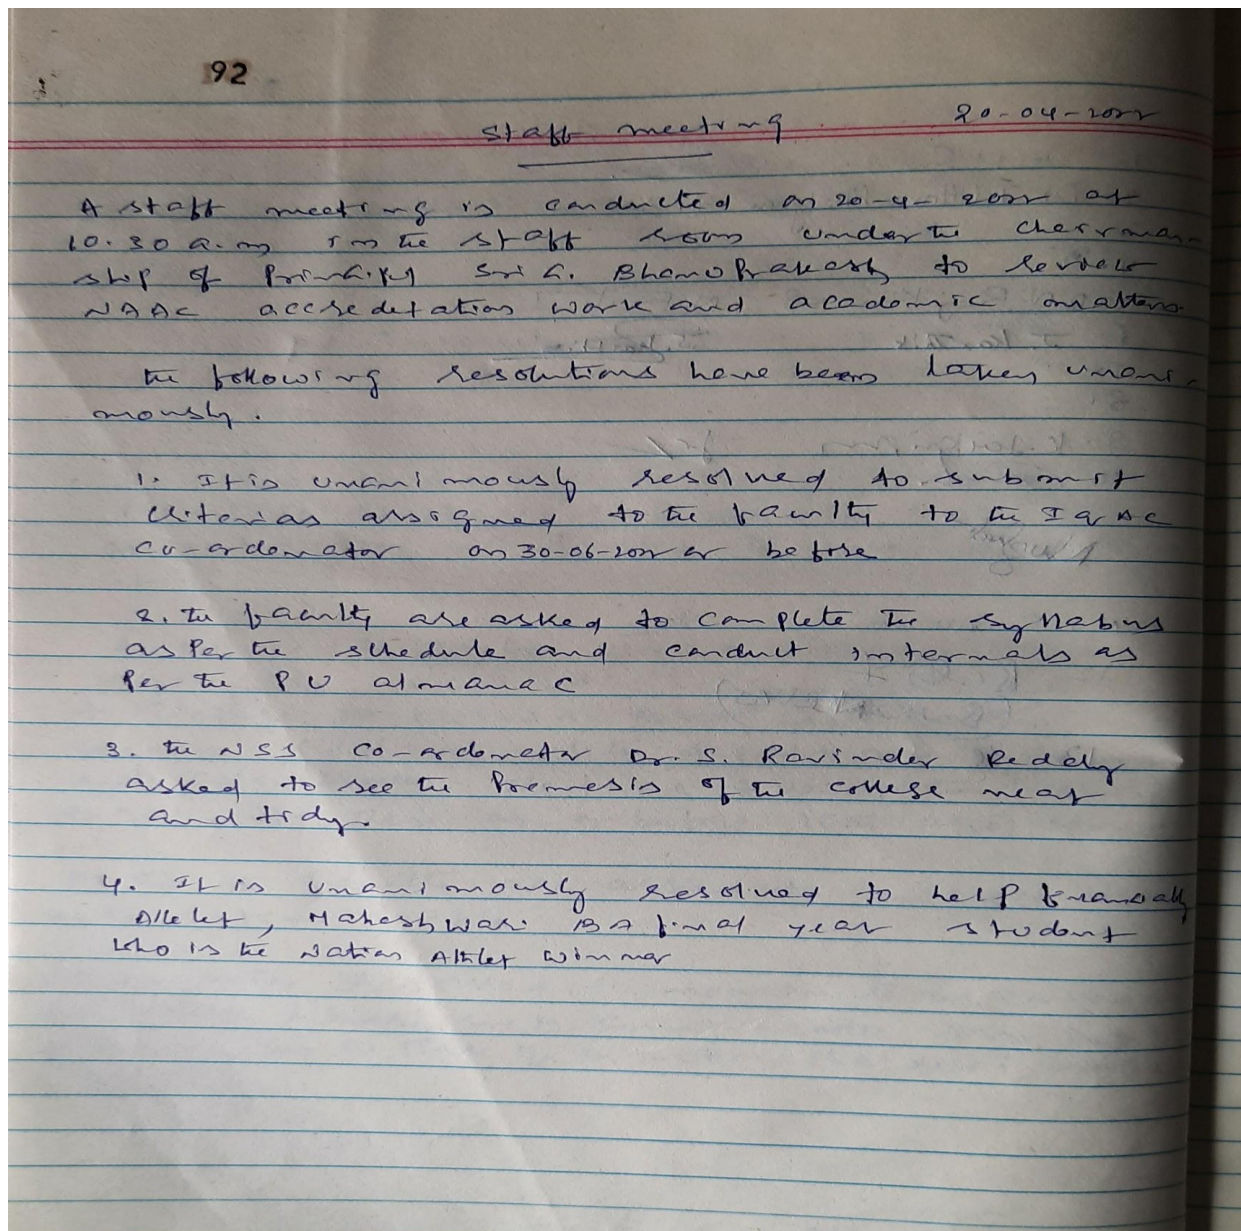 92
Staff meeting 20-04-2022
A staff meeting is conducted on 20-4-2022 at
10.30 a.m in the staff room under the chairman-
ship of Principal Sri G. Bhanu Prakash to review
NAAC accredetation work and academic matters.
the following resolutions have been taken unani-
mously.
1. It is unanimously resolved to submit
criterias assigned to the faculty to the IQAC
co-ordenator on 30-06-2022 or before
2. The faculty are asked to complete the syllabus
as per the schedule and conduct internals as
per the PU almanac
3. the NSS co-ordenator Dr. S. Ravinder Reddy
asked to see the premesis of the college neat
and tidy.
4. It is unanimously resolved to help financially
Athlet, Maheshwari BA final year student
who is the Nation Athlet winner